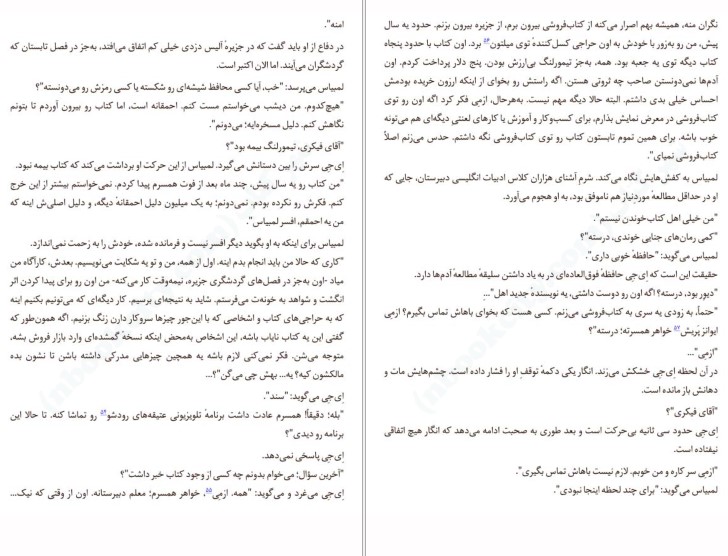 نگران منه، همیشه بهم اصرار می‌کنه از کتاب‌فروشی بیرون برم، از جزیره بیرون بزنم. حدود یه سال
پیش، من رو به‌زور با خودش به اون حراجی کسل‌کنندهٔ توی میلتون۵۲ برد. اون کتاب با حدود پنجاه
کتاب دیگه توی یه جعبه بود. همه، به‌جز تیمورلنگ بی‌ارزش بودن. پنج دلار پرداخت کردم. اون
آدم‌ها نمی‌دونستن صاحب چه ثروتی هستن. اگه راستش رو بخوای از اینکه ارزون خریده بودمش
احساس خیلی بدی داشتم. البته حالا دیگه مهم نیست. به‌هرحال، اِزمی فکر کرد اگه اون رو توی
کتاب‌فروشی در معرض نمایش بذارم، برای کسب‌وکار و آموزش یا کارهای لعنتی دیگه‌ای هم می‌تونه
خوب باشه. برای همین تموم تابستون کتاب رو توی کتاب‌فروشی نگه داشتم. حدس می‌زنم اصلاً
کتاب‌فروشی نمیای".
لمبیاس به کفش‌هایش نگاه می‌کند. شرمِ آشنای هزاران کلاس ادبیات انگلیسی دبیرستان، جایی که
او در حداقل مطالعهٔ موردنیاز هم ناموفق بود، به او هجوم می‌آورد.
"من خیلی اهل کتاب‌خوندن نیستم".
"کمی رمان‌های جنایی خوندی، درسته"؟
لمبیاس می‌گوید: "حافظهٔ خوبی داری".
حقیقت این است که اِی‌جِی حافظهٔ فوق‌العاده‌ای در به یاد داشتن سلیقهٔ مطالعهٔ آدم‌ها دارد.
"دیور بود، درسته؟ اگه اون رو دوست داشتی، یه نویسندهٔ جدید اهل"...
"حتماً، یه زودی یه سری به کتاب‌فروشی می‌زنم. کسی هست که بخوای باهاش تماس بگیرم؟ اِزمی
ایوانز پَریش۵۳ خواهر همسرته؛ درسته"؟
"اِزمی"...
در آن لحظه اِی‌جِی خشکش می‌زند. انگار یکی دکمهٔ توقفِ او را فشار داده است. چشم‌هایش مات و
دهانش باز مانده است.
"آقای فیکری"؟
اِی‌جِی حدود سی ثانیه بی‌حرکت است و بعد طوری به صحبت ادامه می‌دهد که انگار هیچ اتفاقی
نیفتاده است.
"اِزمی سر کاره و من خوبم. لازم نیست باهاش تماس بگیری".
لمبیاس می‌گوید: "برای چند لحظه اینجا نبودی".
امنه".
در دفاع از او باید گفت که در جزیرهٔ آلیس دزدی خیلی کم اتفاق می‌افتد، به‌جز در فصل تابستان که
گردشگران می‌آیند. اما الان اکتبر است.
لمبیاس می‌پرسد: "خب، آیا کسی محافظ شیشه‌ای رو شکسته یا کسی رمزش رو می‌دونسته"؟
"هیچ‌کدوم. من دیشب می‌خواستم مست کنم. احمقانه است، اما کتاب رو بیرون آوردم تا بتونم
نگاهش کنم. دلیل مسخره‌ایه؛ می‌دونم".
"آقای فیکری، تیمورلنگ بیمه بود"؟
اِی‌جِی سرش را بین دستانش می‌گیرد. لمبیاس از این حرکت او برداشت می‌کند که کتاب بیمه نبود.
"من کتاب رو یه سال پیش، چند ماه بعد از فوت همسرم پیدا کردم. نمی‌خواستم بیشتر از این خرج
کنم. فکرش رو نکرده بودم. نمی‌دونم؛ به یک میلیون دلیل احمقانهٔ دیگه، و دلیل اصلی‌ش اینه که
من یه احمقم، افسر لمبیاس".
لمبیاس برای اینکه به او بگوید دیگر افسر نیست و فرمانده شده، خودش را به زحمت نمی‌اندازد.
"کاری که حالا من باید انجام بدم اینه. اول از همه، من و تو یه شکایت می‌نویسیم. بعدش، کارآگاه من
میاد -اون به‌جز در فصل‌های گردشگری جزیره، نیمه‌وقت کار می‌کنه- من اون رو برای پیدا کردن اثر
انگشت و شواهد به خونه‌ت می‌فرستم. شاید به نتیجه‌ای برسیم. کار دیگه‌ای که می‌تونیم بکنیم اینه
که به حراجی‌های کتاب و اشخاصی که با این‌جور چیزها سروکار دارن زنگ بزنیم. اگه همون‌طور که
گفتی این یه کتاب نایاب باشه، این اشخاص به‌محض اینکه نسخهٔ گمشده‌ای وارد بازار فروش بشه،
متوجه می‌شن. فکر نمی‌کنی لازم باشه یه همچین چیزهایی مدرکی داشته باشن تا نشون بده
مالکشون کیه؟ یه... بهش چی می‌گن"؟...
اِی‌جِی می‌گوید: "سند".
"بله؛ دقیقاً! همسرم عادت داشت برنامهٔ تلویزیونی عتیقه‌های رودشو۵۴ رو تماشا کنه. تا حالا این
برنامه رو دیدی"؟
اِی‌جِی پاسخی نمی‌دهد.
"آخرین سؤال؛ می‌خوام بدونم چه کسی از وجود کتاب خبر داشت"؟
اِی‌جِی می‌غرد و می‌گوید: "همه. اِزمی۵۵، خواهر همسرم؛ معلم دبیرستانه. اون از وقتی که نیک...